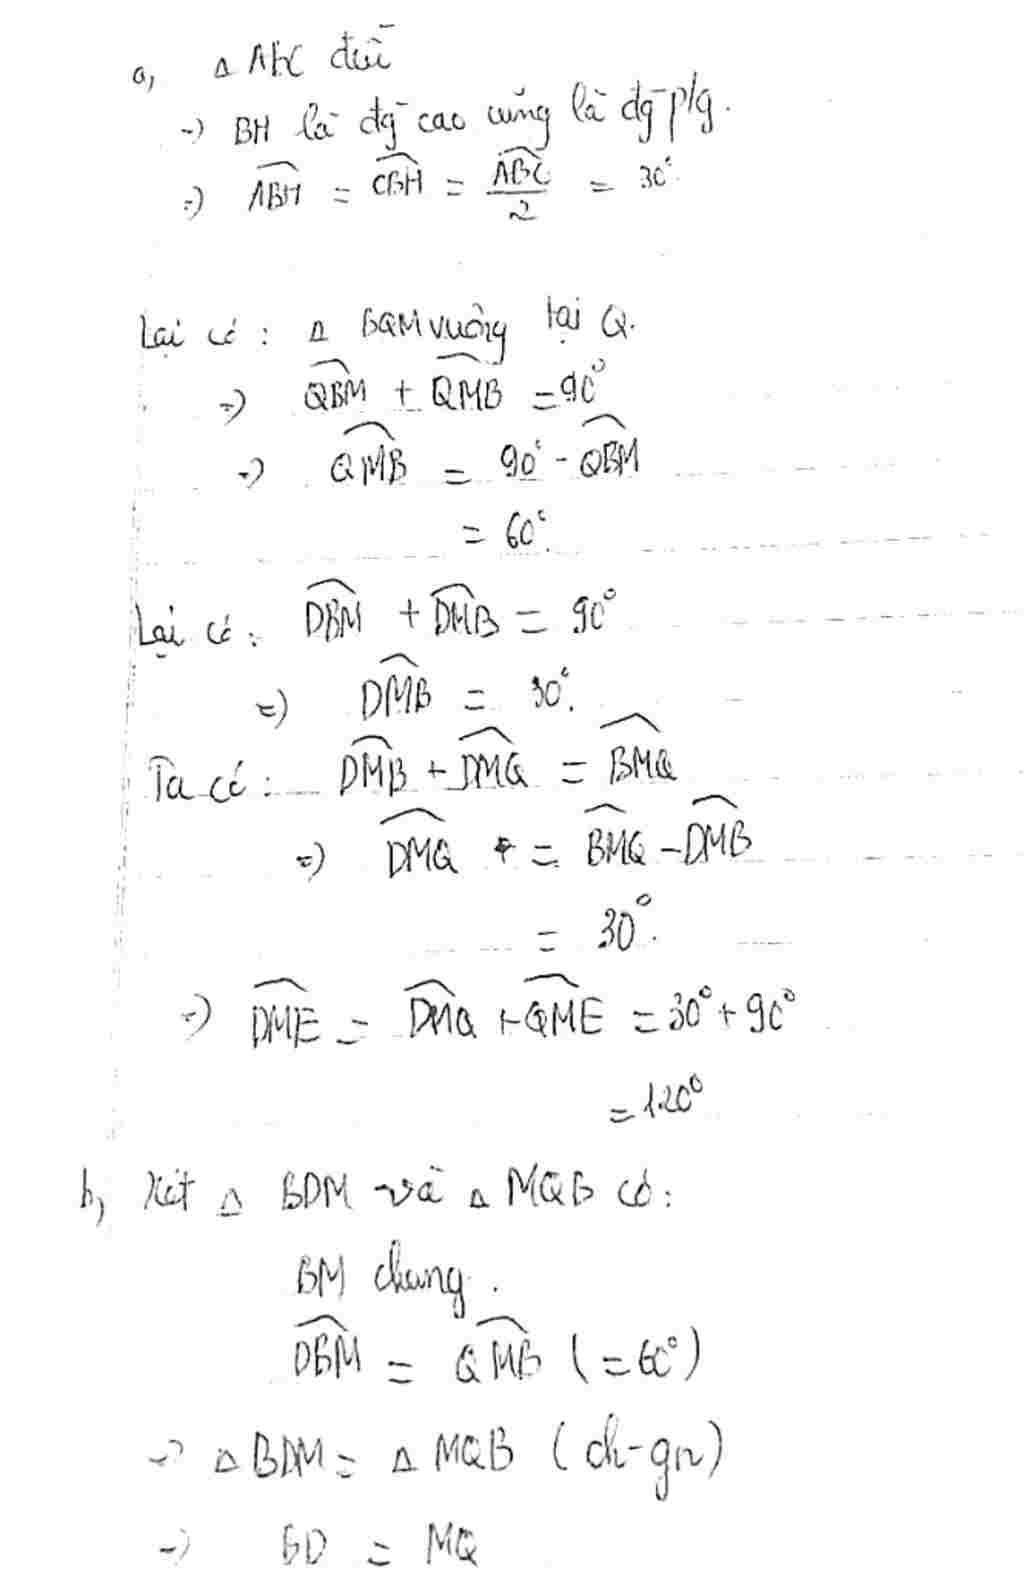 a, △ ABC đều
=) BH là đg cao cũng là đg p/g.
=) \widehat{ABH} = \widehat{CBH} = \frac{\widehat{ABC}}{2} = 30°.
Lại có: △ BQM vuông tại Q.
=) \widehat{QBM} + \widehat{QMB} = 90°
=) \widehat{QMB} = 90° - \widehat{QBM}
= 60°.
Lại có: \widehat{DBM} + \widehat{DMB} = 90°
=) \widehat{DMB} = 30°.
Ta có: \widehat{DMB} + \widehat{DMQ} = \widehat{BMQ}
=) \widehat{DMQ} = \widehat{BMQ} - \widehat{DMB}
= 30°.
=) \widehat{DME} = \widehat{DMQ} + \widehat{QME} = 30° + 90°
= 120°
b, Xét △ BDM và △ MQB có:
BM chung.
\widehat{DBM} = \widehat{QMB} (= 60°)
=) △ BDM = △ MQB (ch-gn)
=) BD = MQ